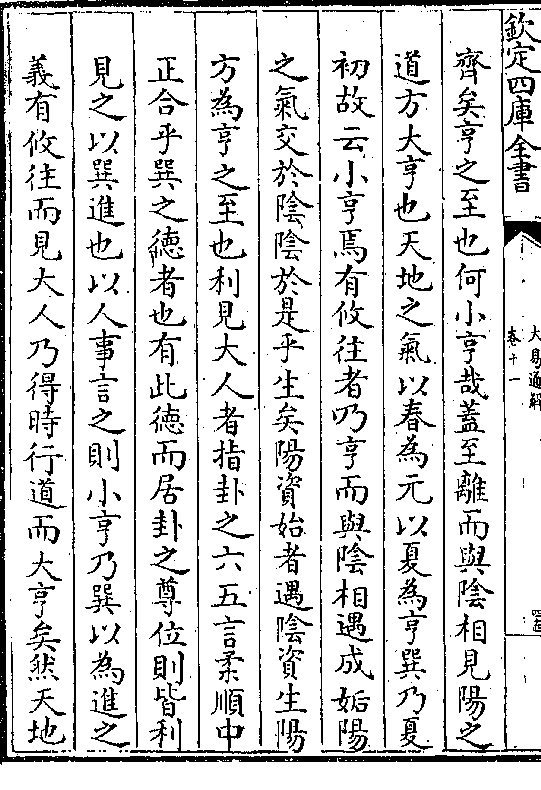 欽定四庫全書
大易通解
卷十一
齊矣亨之至也何小亨哉蓋至離而與陰相見陽之
道方大亨也天地之氣以春為元以夏為亨巽乃夏
初故云小亨焉有攸往者乃亨而與陰相遇成姤陽
之氣交於陰陰於是乎生矣陽資始者遇陰資生陽
方為亨之至也利見大人者指卦之六五言柔順中
正合乎巽之德者也有此德而居卦之尊位則皆利
見之以巽進也以人事言之則小亨乃巽以為進之
義有攸往而見大人乃得時行道而大亨矣然天地